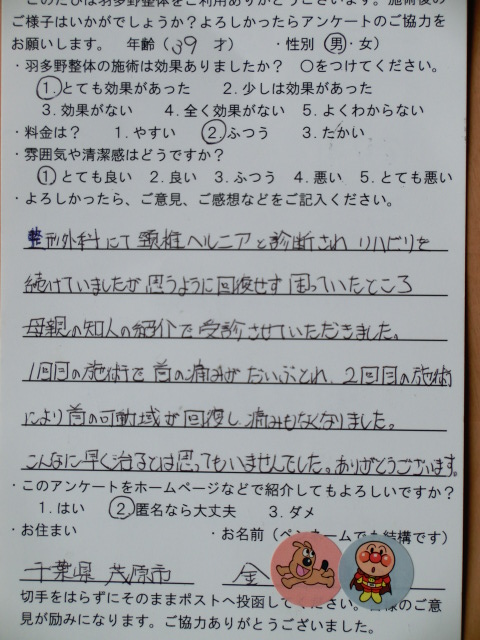 このたびは羽多野整体をご利用ありがとうございます。施術後の
ご様子はいかがでしょうか？よろしかったらアンケートのご協力を
お願いします。 年齢（39 才） ・性別（男・女）
・羽多野整体の施術は効果ありましたか？ 〇をつけてください。
1.とても効果があった 2.少しは効果があった
3.効果がない 4.全く効果がない 5.よくわからない
・料金は？ 1.やすい 2.ふつう 3.たかい
・雰囲気や清潔感はどうですか？
1.とても良い 2.良い 3.ふつう 4.悪い 5.とても悪い
・よろしかったら、ご意見、ご感想などをご記入ください。
整形外科にて頸椎ヘルニアと診断されリハビリを
続けていましたが思うように回復せず困っていたところ
母親の知人の紹介で受診させていただきました。
1回目の施術で首の痛みがだいぶとれ、2回目の施術
により首の可動域が回復し痛みもなくなりました。
こんなに早く治るとは思ってもいませんでした。ありがとうございます。
・このアンケートをホームページなどで紹介してもよろしいですか？
1.はい 2.匿名なら大丈夫 3.ダメ
・お住まい ・お名前（ペンネームでも結構です）
千葉県 茂原市 金
切手をはらずにそのままポストへ投函してください。様のご意
見が励みになります。ご協力ありがとうございました。